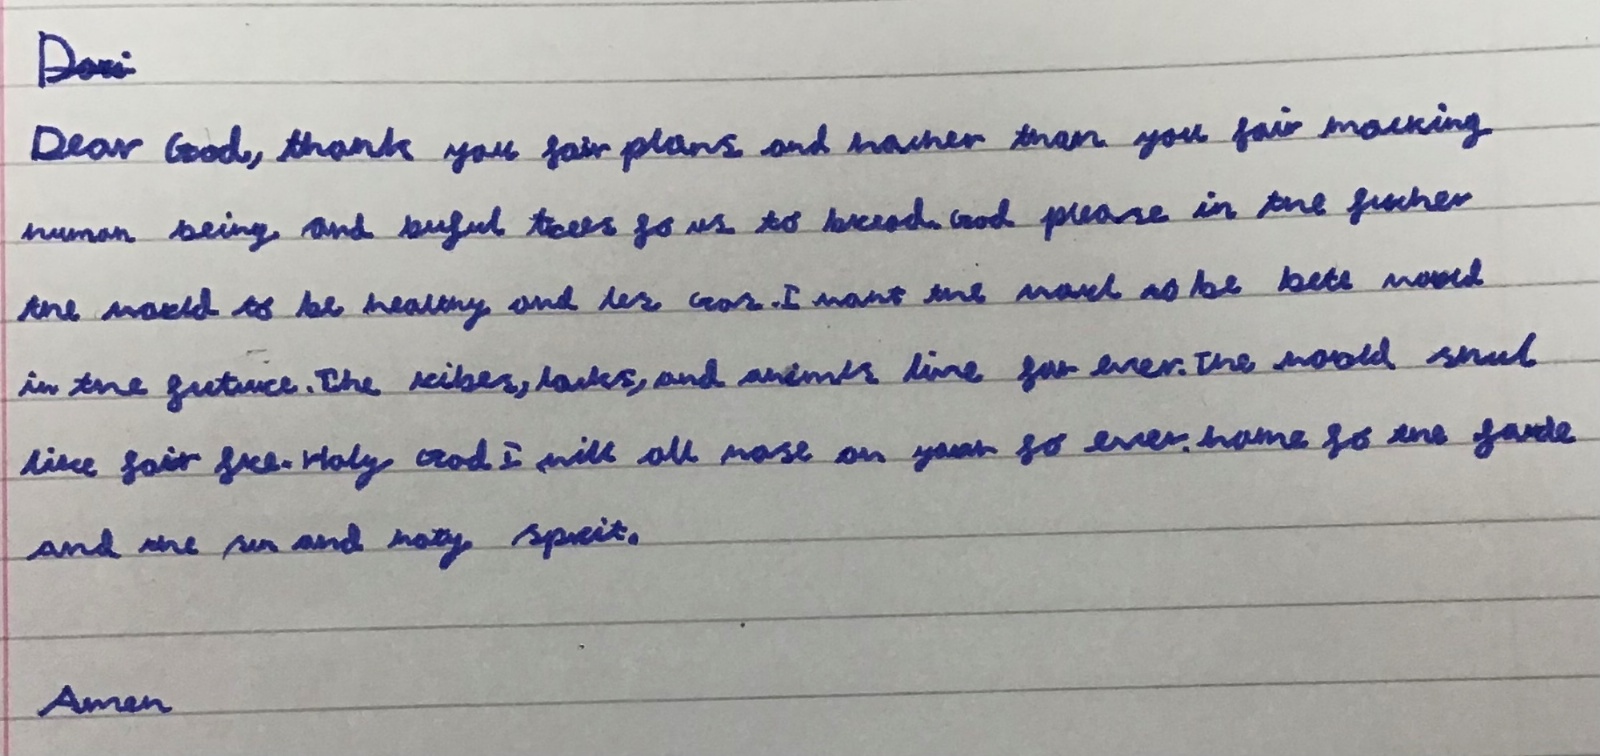 Dear God, thank you fair plans and nacher than you fair macking
human being and buful trees fo us to bread. God please in the fucher
the world to be healthy and les cars. I want the world to be bete world
in the future. The ribes, laks, and anímls live for ever. The world shul
like fair fre. Holy God I will all wase on your fo ever. name fo the farde
and the sun and holy spirit.
Amen